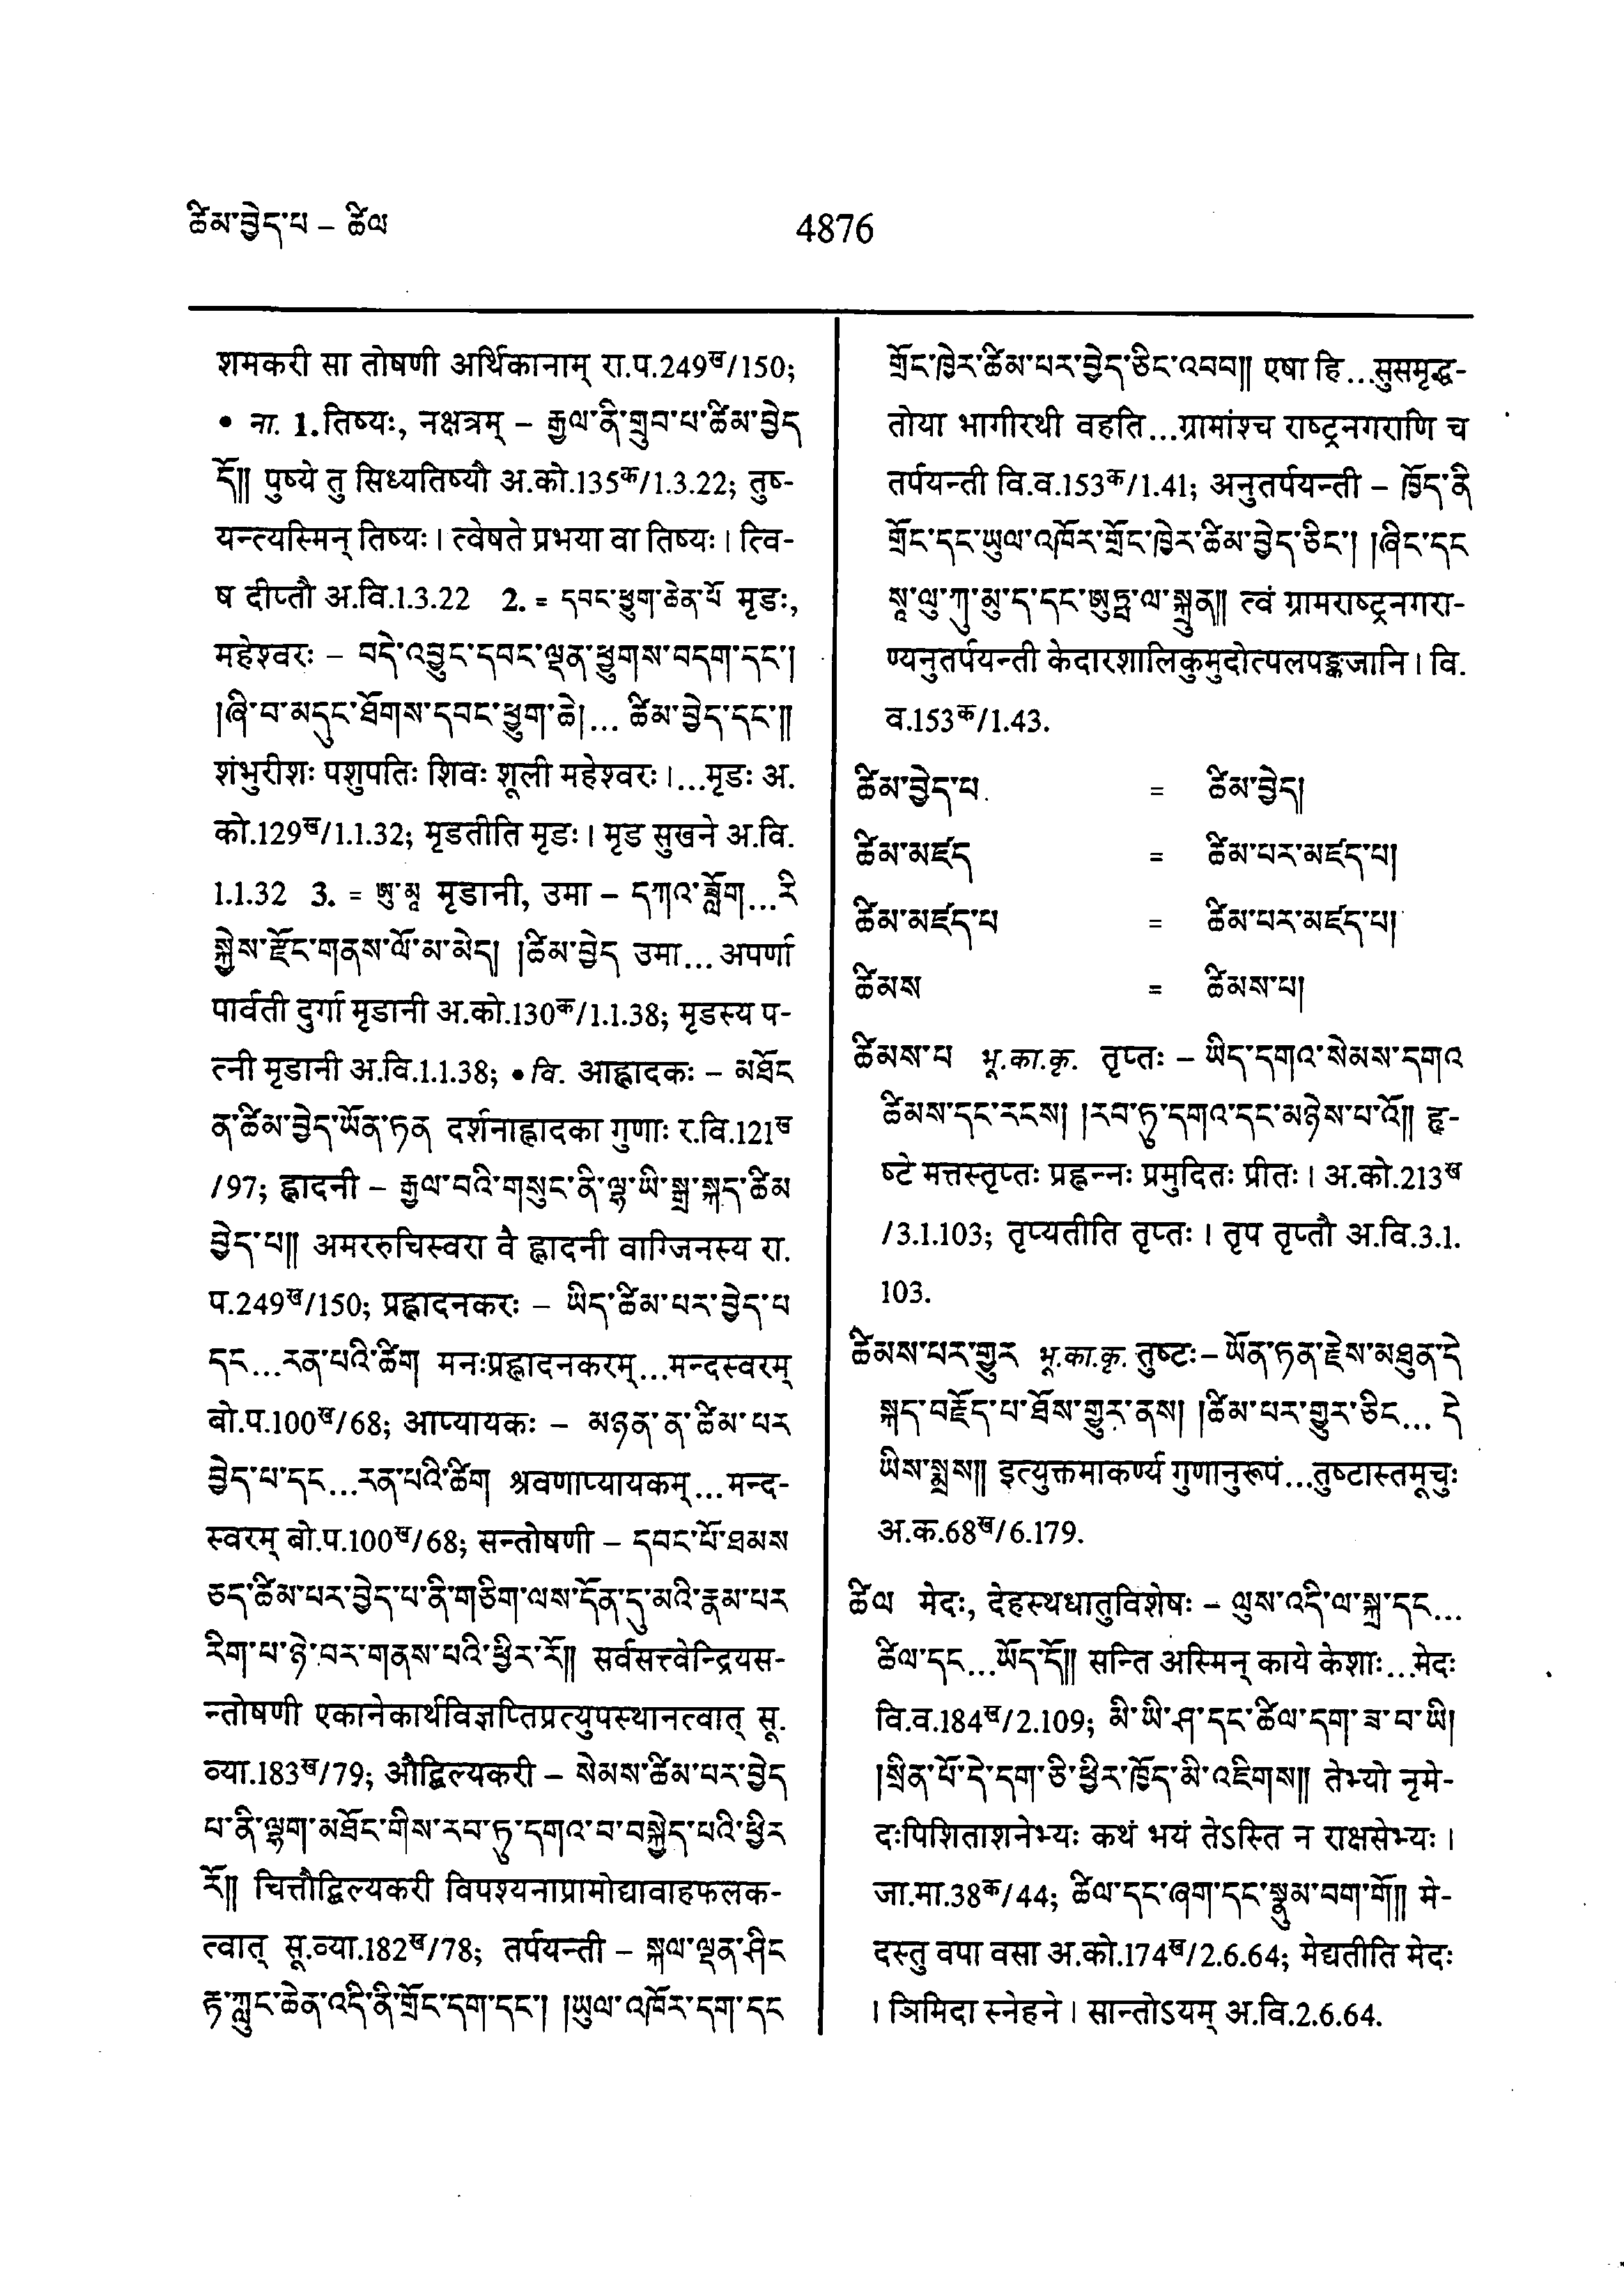 ཚིམ་བྱེད་པ – ཚིལ
4876
शमकरी सा तोषणी अर्थिकानाम् रा.प.249ख/150;
• ना. 1.तिष्यः, नक्षत्रम् – རྒྱལ་ནི་གྲུབ་པ་ཚིམ་བྱེད
དོ།། पुष्ये तु सिध्यतिष्यौ अ.को.135क/1.3.22; तुष-
यन्त्यस्मिन् तिष्यः। त्वेषते प्रभया वा तिष्यः। त्वि-
ष दीप्तौ अ.वि.1.3.22 2. = དབང་ཕྱུག་ཆེན་པོ मृडः,
महेश्वरः – བདེ་འབྱུང་དབང་ལྡན་ཕྱུགས་བདག་དང་།
།ཞི་བ་མདུང་ཐོགས་དབང་ཕྱུག་ཆེ།... ཚིམ་བྱེད་དང་།།
शंभुरीशः पशुपतिः शिवः शूली महेश्वरः।...मृडः अ.
को.129ख/1.1.32; मृडतीति मृडः। मृड सुखने अ.वि.
1.1.32 3. = ཨུ་མཱ मृडानी, उमा – དཀའ་ཟློག...རི
སྐྱེས་རྫོང་གནས་ལོ་མ་མེད། །ཚིམ་བྱེད उमा... अपर्णा
पार्वती दुर्गा मृडानी अ.को.130क/1.1.38; मृडस्य प-
त्नी मृडानी अ.वि.1.1.38; • वि. आह्लादकः – མཐོང
ན་ཚིམ་བྱེད་ཡོན་ཏན दर्शनाह्लादका गुणाः र.वि.121ख
/97; ह्लादनी – རྒྱལ་བའི་གསུང་ནི་ལྷ་ཡི་སྒྲ་སྐད་ཚིམ
བྱེད་པ།། अमररुचिस्वरा वै ह्लादनी वाग्जिनस्य रा.
प.249ख/150; प्रह्लादनकरः – ཡིད་ཚིམ་པར་བྱེད་པ
དང...རན་པའི་ཚིག मनःप्रह्लादनकरम्...मन्दस्वरम्
बो.प.100ख/68; आप्यायकः – མཉན་ན་ཚིམ་པར
བྱེད་པ་དང...རན་པའི་ཚིག श्रवणाप्यायकम्...मन्द-
स्वरम् बो.प.100ख/68; सन्तोषणी – དབང་པོ་ཐམས
ཅད་ཚིམ་པར་བྱེད་པ་ནི་གཅིག་ལས་དོན་དུ་མའི་རྣམ་པར
རིག་པ་ཉེ་བར་གནས་པའི་ཕྱིར་རོ།། सर्वसत्त्वेन्द्रियस-
न्तोषणी एकानेकार्थविज्ञप्तिप्रत्युपस्थानत्वात् सू.
व्या.183ख/79; औद्बिल्यकरी – སེམས་ཚིམ་པར་བྱེད
པ་ནི་ལྷག་མཐོང་གིས་རབ་ཏུ་དགའ་བ་བསྐྱེད་པའི་ཕྱིར
རོ།། चित्तौद्बिल्यकरी विपश्यनाप्रामोद्यावाहफलक-
त्वात् सू.व्या.182ख/78; तर्पयन्ती – སྐལ་ལྡན་ཤིང
རྟ་ཀླུང་ཆེན་འདི་ནི་གྲོང་དག་དང་། །ཡུལ་འཁོར་དག་དང
གྲོང་ཁྱེར་ཚིམ་པར་བྱེད་ཅིང་འབབ།། एषा हि...सुसमृद्ध-
तोया भागीरथी वहति...ग्रामांश्च राष्ट्रनगराणि च
तर्पयन्ती वि.व.153क/1.41; अनुतर्पयन्ती – ཁྱོད་ནི
གྲོང་དང་ཡུལ་འཁོར་གྲོང་ཁྱེར་ཚིམ་བྱེད་ཅིང་། །ཞིང་དང
སཱ་ལུ་ཀུ་མུ་ད་དང་ཨུཏྤ་ལ་སྐྲུན།། त्वं ग्रामराष्ट्रनगरा-
ण्यनुतर्पयन्ती केदारशालिकुमुदोत्पलपङ्कजानि। वि.
व.153क/1.43.
ཚིམ་བྱེད་པ = ཚིམ་བྱེད།
ཚིམ་མཛད = ཚིམ་པར་མཛད་པ།
ཚིམ་མཛད་པ = ཚིམ་པར་མཛད་པ།
ཚིམས = ཚིམས་པ།
ཚིམས་པ भू.का.कृ. तृप्तः – ཡིད་དགའ་སེམས་དགའ
ཚིམས་དང་རངས། །རབ་ཏུ་དགའ་དང་མཉེས་པ་འོ།། हृ-
ष्टे मत्तस्तृप्तः प्रह्लन्नः प्रमुदितः प्रीतः। अ.को.213ख
/3.1.103; तृप्यतीति तृप्तः। तृप तृप्तौ अ.वि.3.1.
103.
ཚིམས་པར་གྱུར भू.का.कृ. तुष्टः– ཡོན་ཏན་རྗེས་མཐུན་དེ
སྐད་བརྗོད་པ་ཐོས་གྱུར་ནས། །ཚིམ་པར་གྱུར་ཅིང... དེ
ཡིས་སྨྲས།། इत्युक्तमाकर्ण्य गुणानुरूपं...तुष्टास्तमूचुः
अ.क.68ख/6.179.
ཚིལ मेदः, देहस्थधातुविशेषः – ལུས་འདི་ལ་སྐྲ་དང...
ཚིལ་དང...ཡོད་དོ།། सन्ति अस्मिन् काये केशाः...मेदः
वि.व.184ख/2.109; མི་ཡི་ཤ་དང་ཚིལ་དག་ཟ་བ་ཡི།
།སྲིན་པོ་དེ་དག་ཅི་ཕྱིར་ཁྱོད་མི་འཇིགས།། तेभ्यो नृमे-
दःपिशिताशनेभ्यः कथं भयं तेऽस्ति न राक्षसेभ्यः।
जा.मा.38क/44; ཚིལ་དང་ཞག་དང་སྣུམ་བག་གོ།། मे-
दस्तु वपा वसा अ.को.174ख/2.6.64; मेद्यतीति मेदः
। ञिमिदा स्नेहने। सान्तोऽयम् अ.वि.2.6.64.